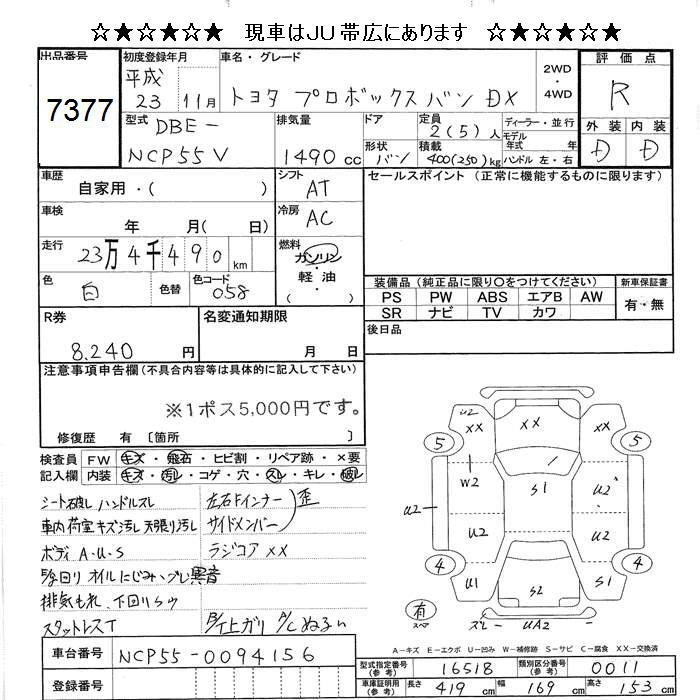 ☆★☆★☆★ 現車はJU帯広にあります ☆★☆★☆★
出品番号 初度登録年月 車名・グレード 2WD・4WD 評価点
7377 平成23 11月 トヨタ プロボックスバン DX R
型式 DBE- 排気量 ドア 定員 2(5)人 ディーラー・並行 外装 内装
NCP55V 1490cc 形状 バン 積載 400(250)kg モデル年式 年 ハンドル 左・右 D D
車歴 自家用・( ) シフト AT セールスポイント(正常に機能するものに限ります)
車検 年 月( 日) 冷房 AC
走行 23万4千490km 燃料 ガソリン・軽油・( )
色 白 色替 色コード 058
装備品(純正品に限り○をつけてください) 新車保証書
PS PW ABS エアB AW 有・無
SR ナビ TV カワ
後日品
R券 8,240円 名変通知期限 月 日
注意事項申告欄(不具合内容等は具体的に記入して下さい)
※1ポス5,000円です。
修復歴 有 〔箇所 〕
検査員記入欄 FW キズ・飛石・ヒビ割・リペア跡・×要
内装 キズ・汚レ・コゲ・穴・スレ・キレ・破レ
シート破レ ハンドルスレ 左右Fインナー
車内荷室キズ汚レ 天張り汚レ サイドメンバー 歪
ボディ A・U・S ラジコア XX
オイルにじみ、ブレ異音
排気もれ、下回りサウ
スタットレスT 下上ガリ A/Cぬるい
車台番号 NCP55-0094156
登録番号
U2 XX XX XX
5 5
W2 S1 U2
U2 U2 U2
4 4
U1 S2 S1
有 スペア ズレ UA2
A-キズ E-エクボ U-凹み W-補修跡 S-サビ C-腐食 XX-交換済
型式指定番号(参考) 16518 類別区分番号(参考) 0011
車庫証明用(参考) 長さ 419cm 幅 169cm 高さ 153cm